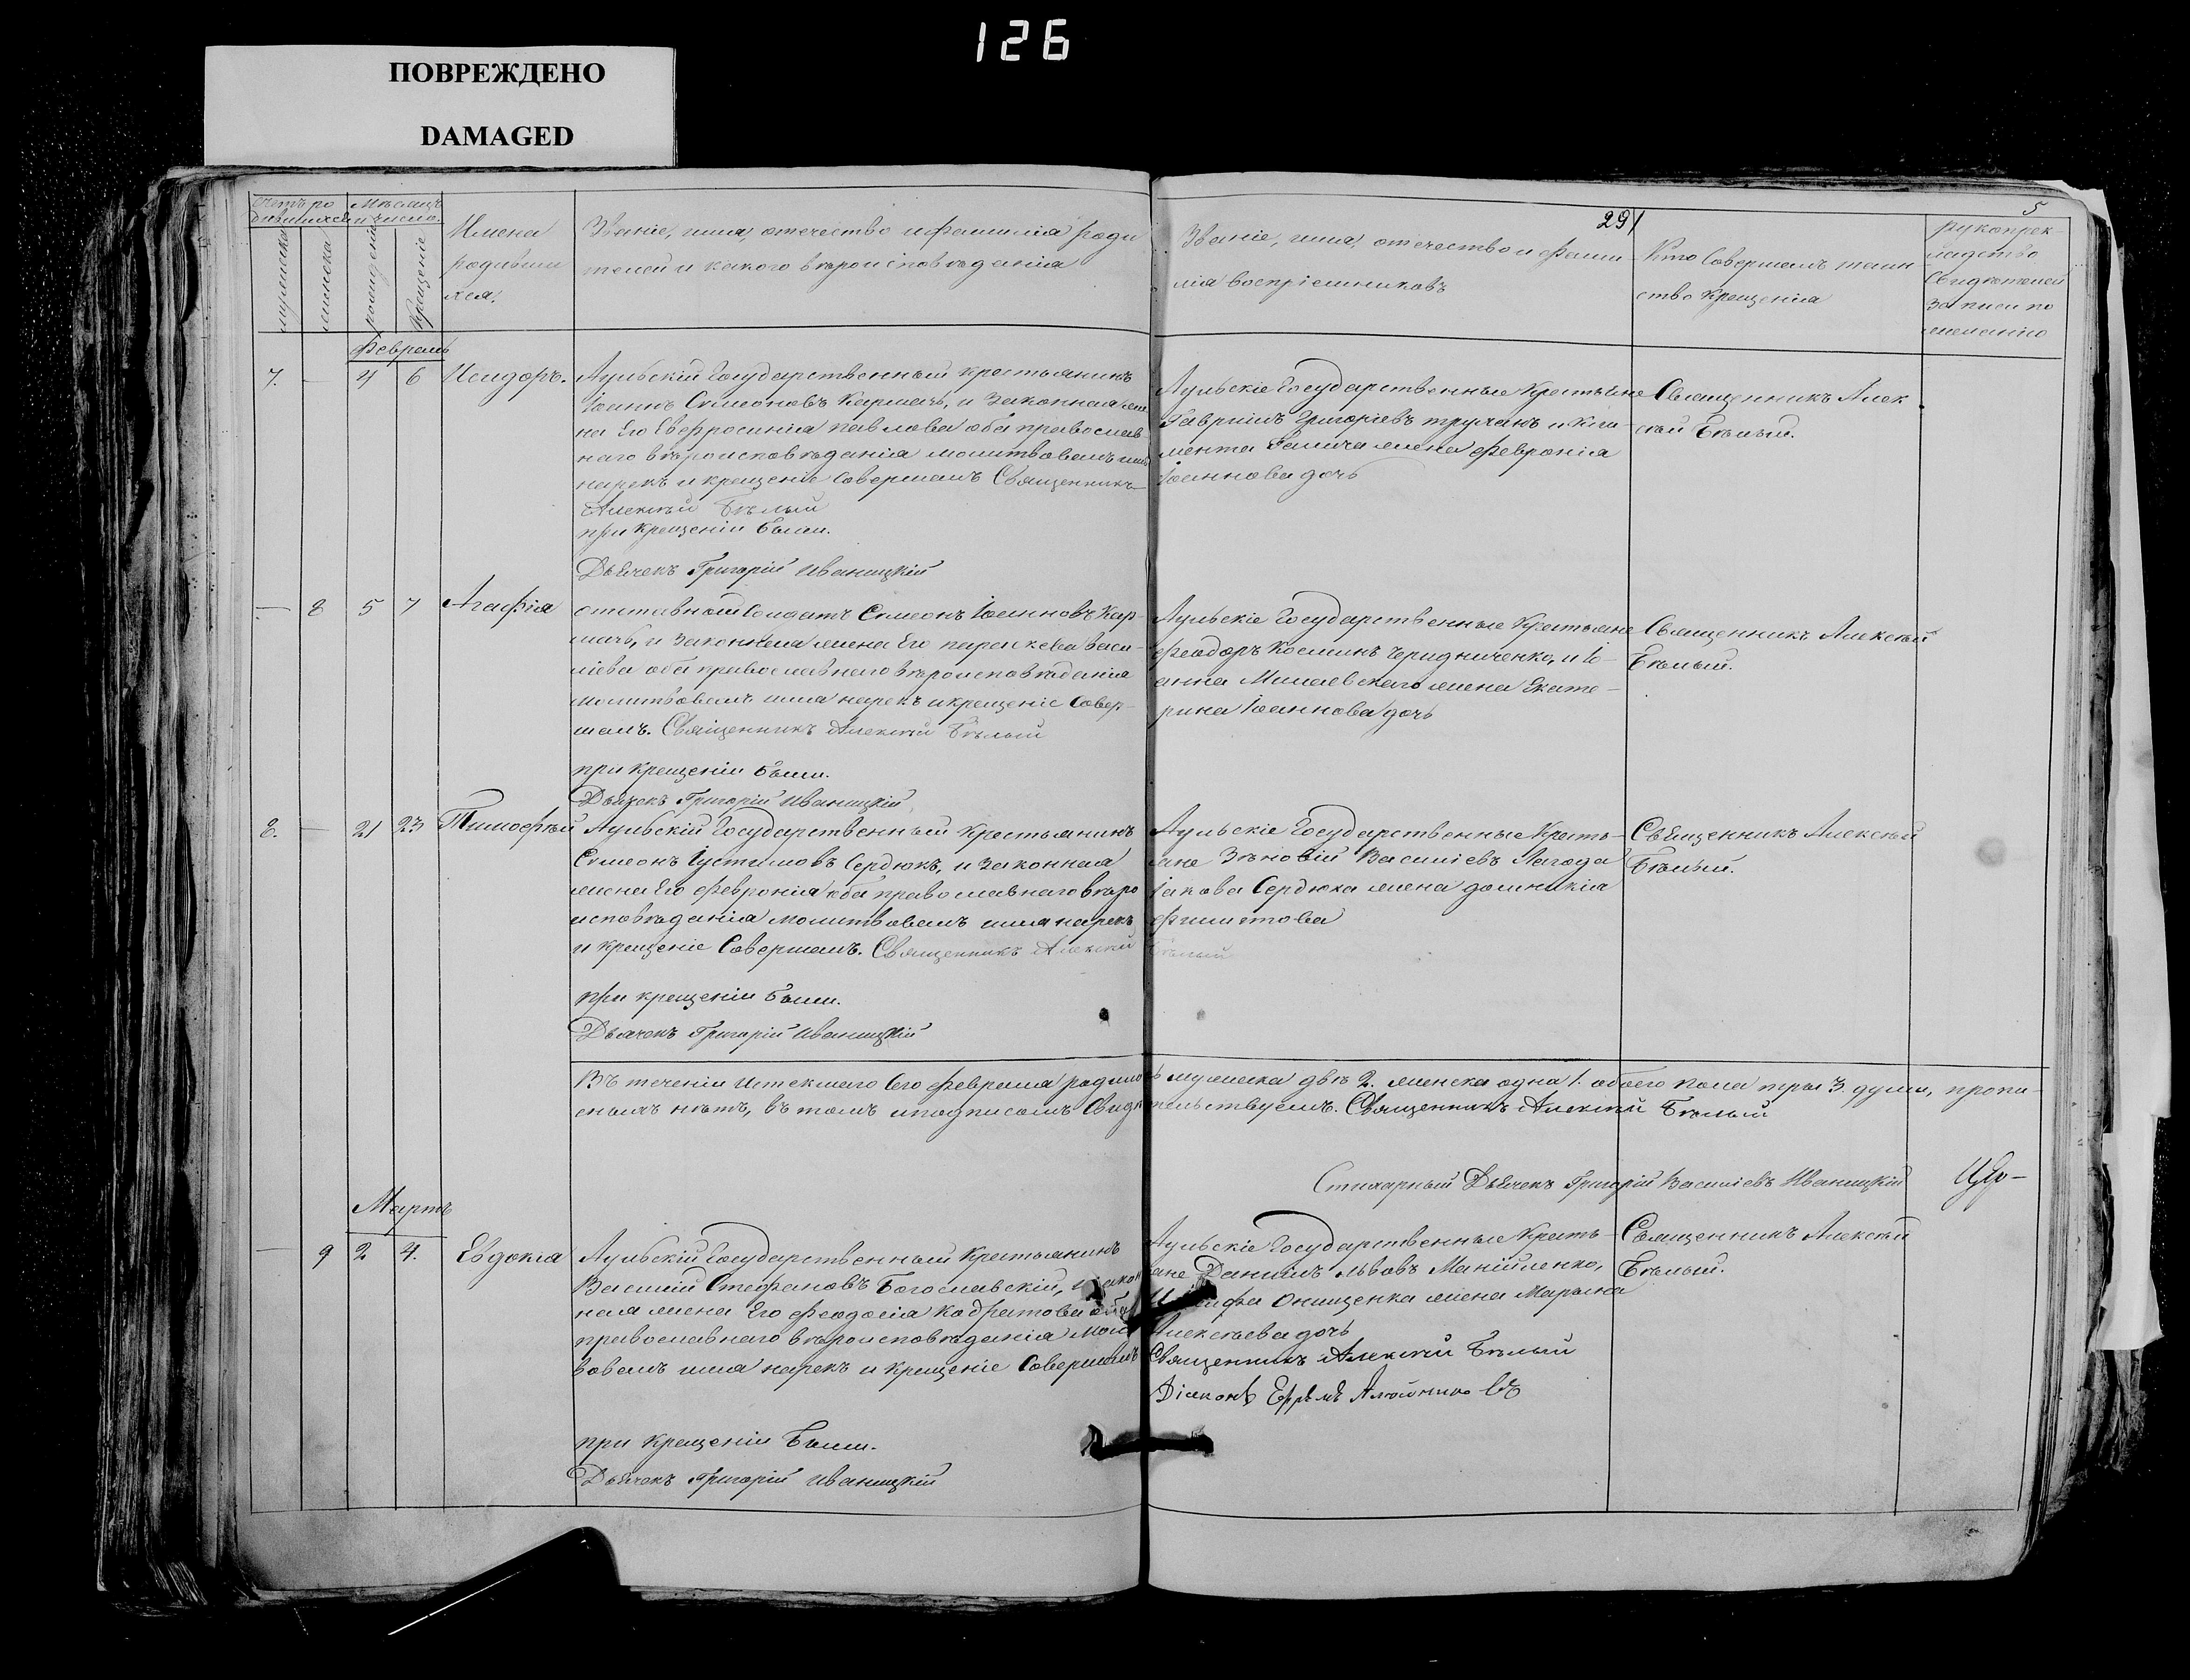 126
ПОВРЕЖДЕНО
DAMAGED
291
5
Счетъ ро
дившихся
Мѣсяцъ
и число.
мужеска
женска
рожденія
крещеніе
Имена
родивши
хся.
Званіе, имя, отечество и фамилія роди
телей и какого вѣроисповѣданія
Званіе, имя, отечество и фами-
лія воспріемниковъ
Кто Совершалъ таин
ство крещенія
рукоприк-
ладство
Свидѣтелей
записи по
желанію
Февраль
7. — 4 6 Исидоръ.
Аульскій Государственный крестьянинъ
Іоаннъ Симеоновъ Кармачъ, и Законная же
на Его Евфросинія Павлова оба православ
наго вѣроисповѣданія молитвовалъ имя
нарекъ и крещеніе Совершалъ Священникъ
Алексѣй Бѣлый
при крещеніи были.
Дьячекъ Григорій Иваницкій
Аульскіе Государственные Крестьяне
Гавріилъ Григоріевъ и Кли-
мента жена Февронія
Іоаннова дочь
Священникъ Алек
сѣй Бѣлый.
— 8 5 7 Агафія
отставный Солдатъ Симеонъ Іоанновъ Кар-
мачъ, и Законная жена Его Параскева Васи-
ліева оба православнаго вѣроисповѣданія
молитвовалъ имя нарекъ и крещеніе Совер-
шалъ. Священникъ Алексѣй Бѣлый
при крещеніи были.
Дьячекъ Григорій Иваницкій
Аульскіе Государственные Крестьяне
Феодоръ Косминъ Чередниченко, и Іо-
анна Милаевскаго жена Екате-
рина Іоаннова дочь
Священникъ Алексѣй
Бѣлый.
8. — 21 23 Тимофѣй
Аульскій Государственный Крестьянинъ
Симеонъ Іустиновъ Сердюкъ, и Законная
жена Его Февронія оба православнаго вѣро
исповѣданія молитвовалъ имя нарекъ
и крещеніе Совершалъ. Священникъ Алексѣй Бѣлый
при крещеніи были.
Дьячекъ Григорій Иваницкій
Аульскіе Государственные Кресть-
яне Зѣновій Василіевъ Лагода
Іакова Сердюка жена Домникія
Филиппова
Священникъ Алексѣй
Бѣлый.
Въ теченіи истекшаго Сего февраля родилось мужеска двѣ 2. женска одна 1. обоего пола три 3. души, пропи-
сныхъ нѣтъ, въ томъ и подписомъ Свидѣтельствуемъ. Священникъ Алексѣй Бѣлый
Стихарный Дьячекъ Григорій Василіевъ Иваницкій
Мартъ
— 9 2 4. Евдокія
Аульскій Государственный Крестьянинъ
Василій Стефановъ Богославскій, и Закон
ная жена Его Феодосія Кодратова оба
православнаго вѣроисповѣданія Молит
вовалъ имя нарекъ и крещеніе Совершалъ
при крещеніи были.
Дьячекъ Григорій Иваницкій
Аульскіе Государственные Кресть-
яне Даніилъ Львовъ Манійленко,
Онищенка жена Марьяна
Алексѣева дочь
Священникъ Алексѣй Бѣлый
Діаконъ Ефремъ
Священникъ Алексѣй
Бѣлый.